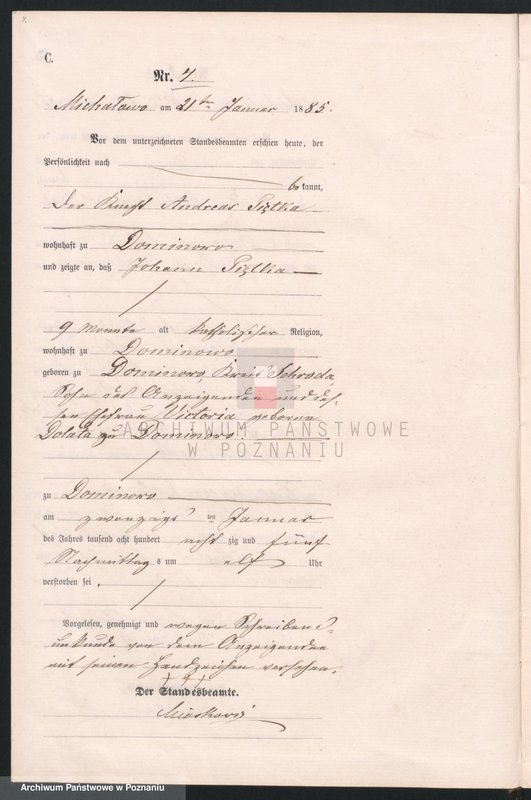 C.
Nr. 7.
Michałowo am 21ten Januar 1885.
Vor dem unterzeichneten Standesbeamten erschien heute, der
Persönlichkeit nach
bekannt,
der Knecht Andreas
wohnhaft zu Dominowo
und zeigte an, daß Johann
9 Monate alt katholischer Religion,
wohnhaft zu Dominowo
geboren zu Dominowo, Kreis Schroda,
Sohn des Anzeigenden und des-
sen Ehefrau Victoria geborene
Dolata zu Dominowo
ARCHIWUM PAŃSTWOWE
W POZNANIU
zu Dominowo
am zwanzigsten Januar
des Jahres tausend acht hundert achtzig und fünf
Nachmittags um elf Uhr
verstorben sei.
Vorgelesen, genehmigt und wegen Schreibens
unkunde von dem Anzeigenden
mit seinem Handzeichen versehen.
+++
Der Standesbeamte.
Archiwum Państwowe w Poznaniu